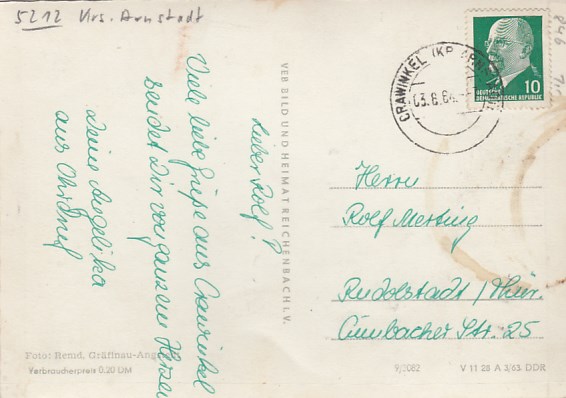 5212 Krs. Arnstadt
Lieber Rolf!
Viele liebe Grüße aus Crawinkel
sendet Dir von ganzem Herzen
Deine Angelika
aus
VEB BILD UND HEIMAT REICHENBACH I. V.
CRAWINKEL (KR. ARNSTADT)
03.8.64
10
DEUTSCHE
DEMOKRATISCHE REPUBLIK
Herrn
Rolf Merting
Rudolstadt / Thür.
Cumbacher Str. 25
Foto: Remd, Gräfinau-Angst
Verbraucherpreis 0.20 DM
9/2082
V 11 28 A 3/63 DDR